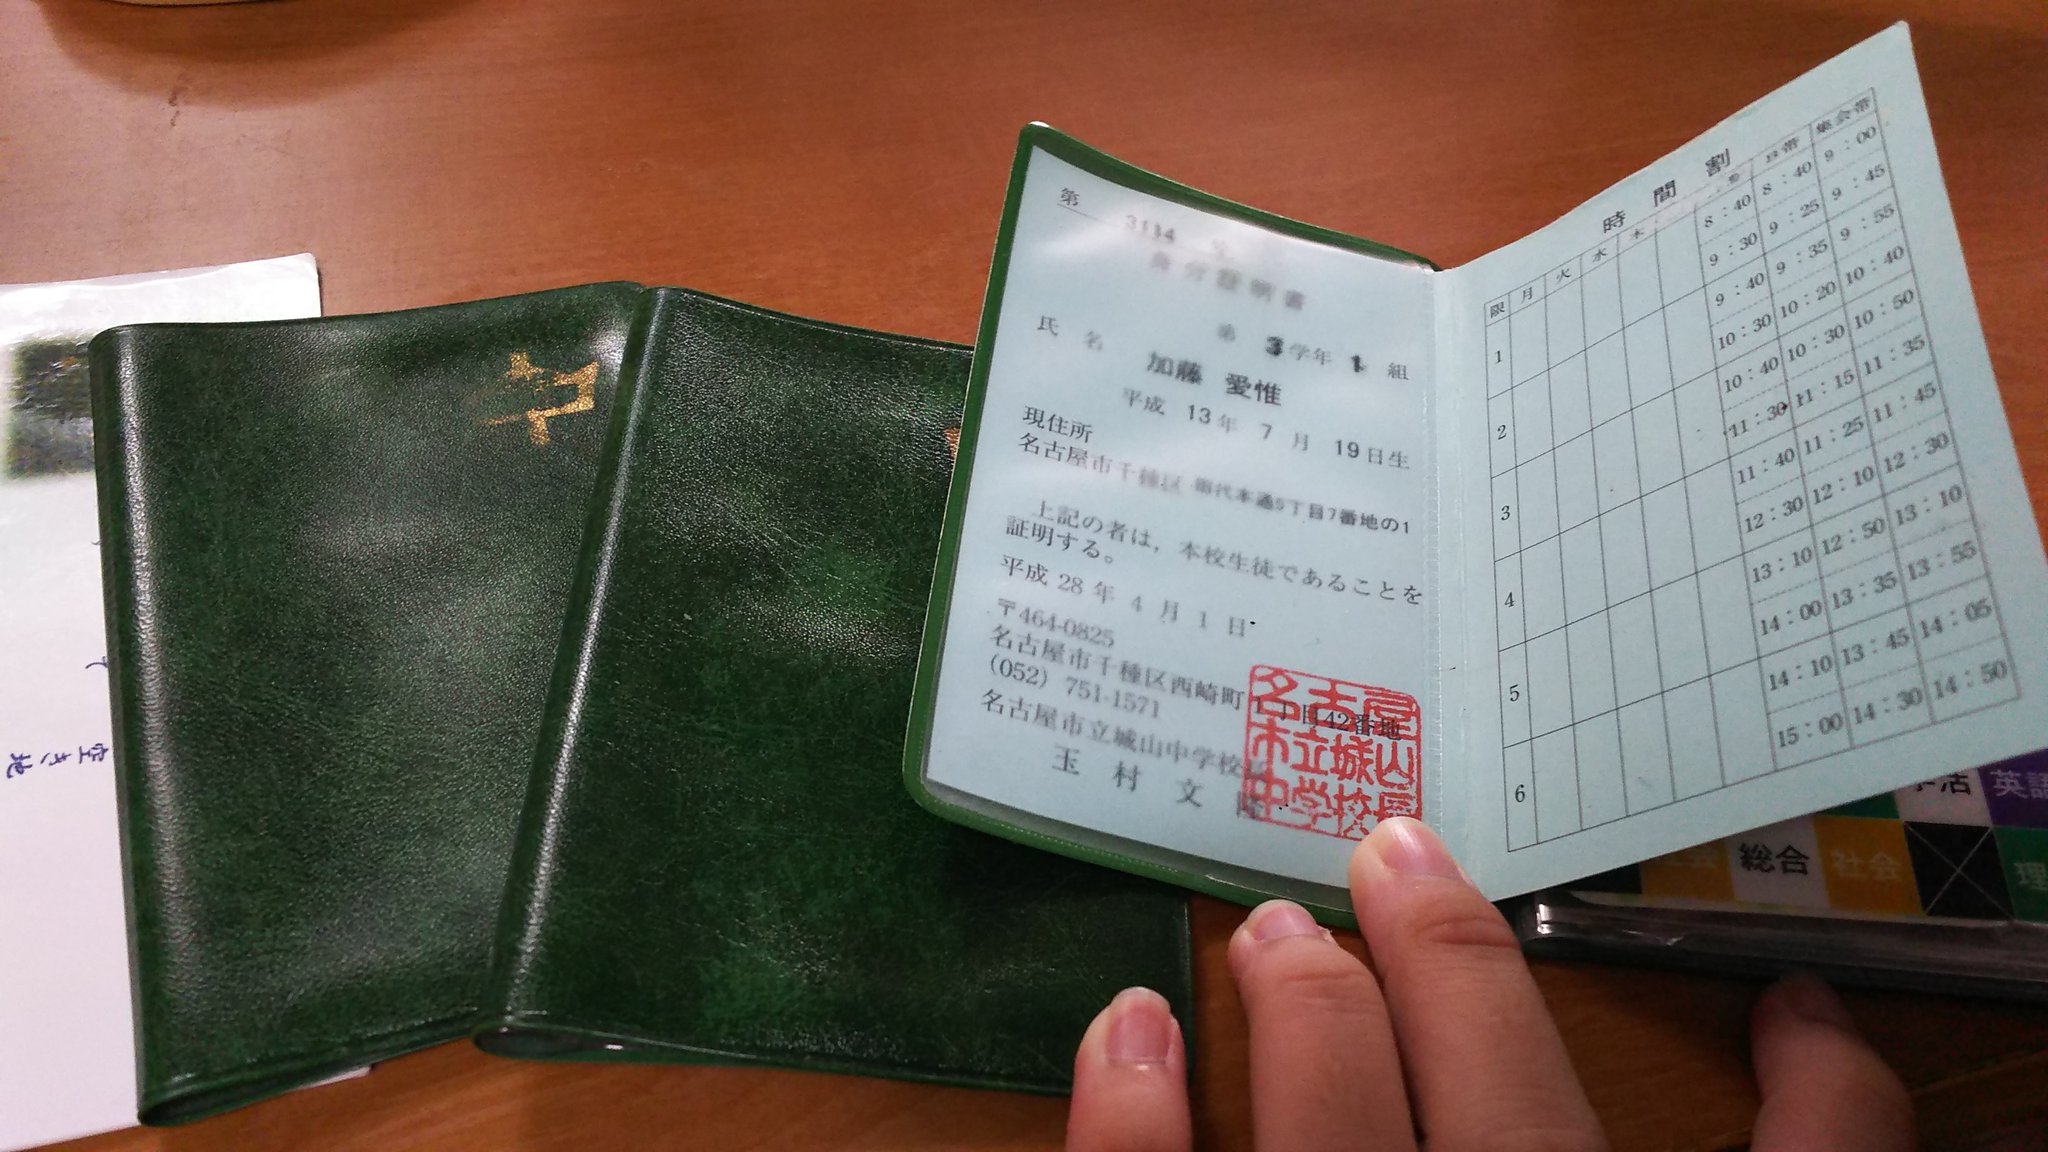 第 3114 号
身分証明書
第 3 学年 1 組
氏 名 加藤 愛惟
平成 13年 7 月 19日生
現住所
名古屋市千種区 田代本通5丁目7番地の1
上記の者は，本校生徒であることを
証明する。
平成 28 年 4 月 1 日
〒464-0825
名古屋市千種区西崎町 1丁目42番地
(052) 751-1571
名古屋市立城山中学校長
玉 村 文
名古屋
市立城山
中学校長
時 間 割
限 月 火 水 木 B帯 集会帯
1 8:40 8:40 9:00
9:30 9:25 9:45
2 9:40 9:35 9:55
10:30 10:20 10:40
3 10:40 10:30 10:50
11:30 11:15 11:35
4 11:40 11:25 11:45
12:30 12:10 12:30
5 13:10 12:50 13:10
14:00 13:35 13:55
6 14:10 13:45 14:05
15:00 14:30 14:50
英語
総合 社会
理
空き地